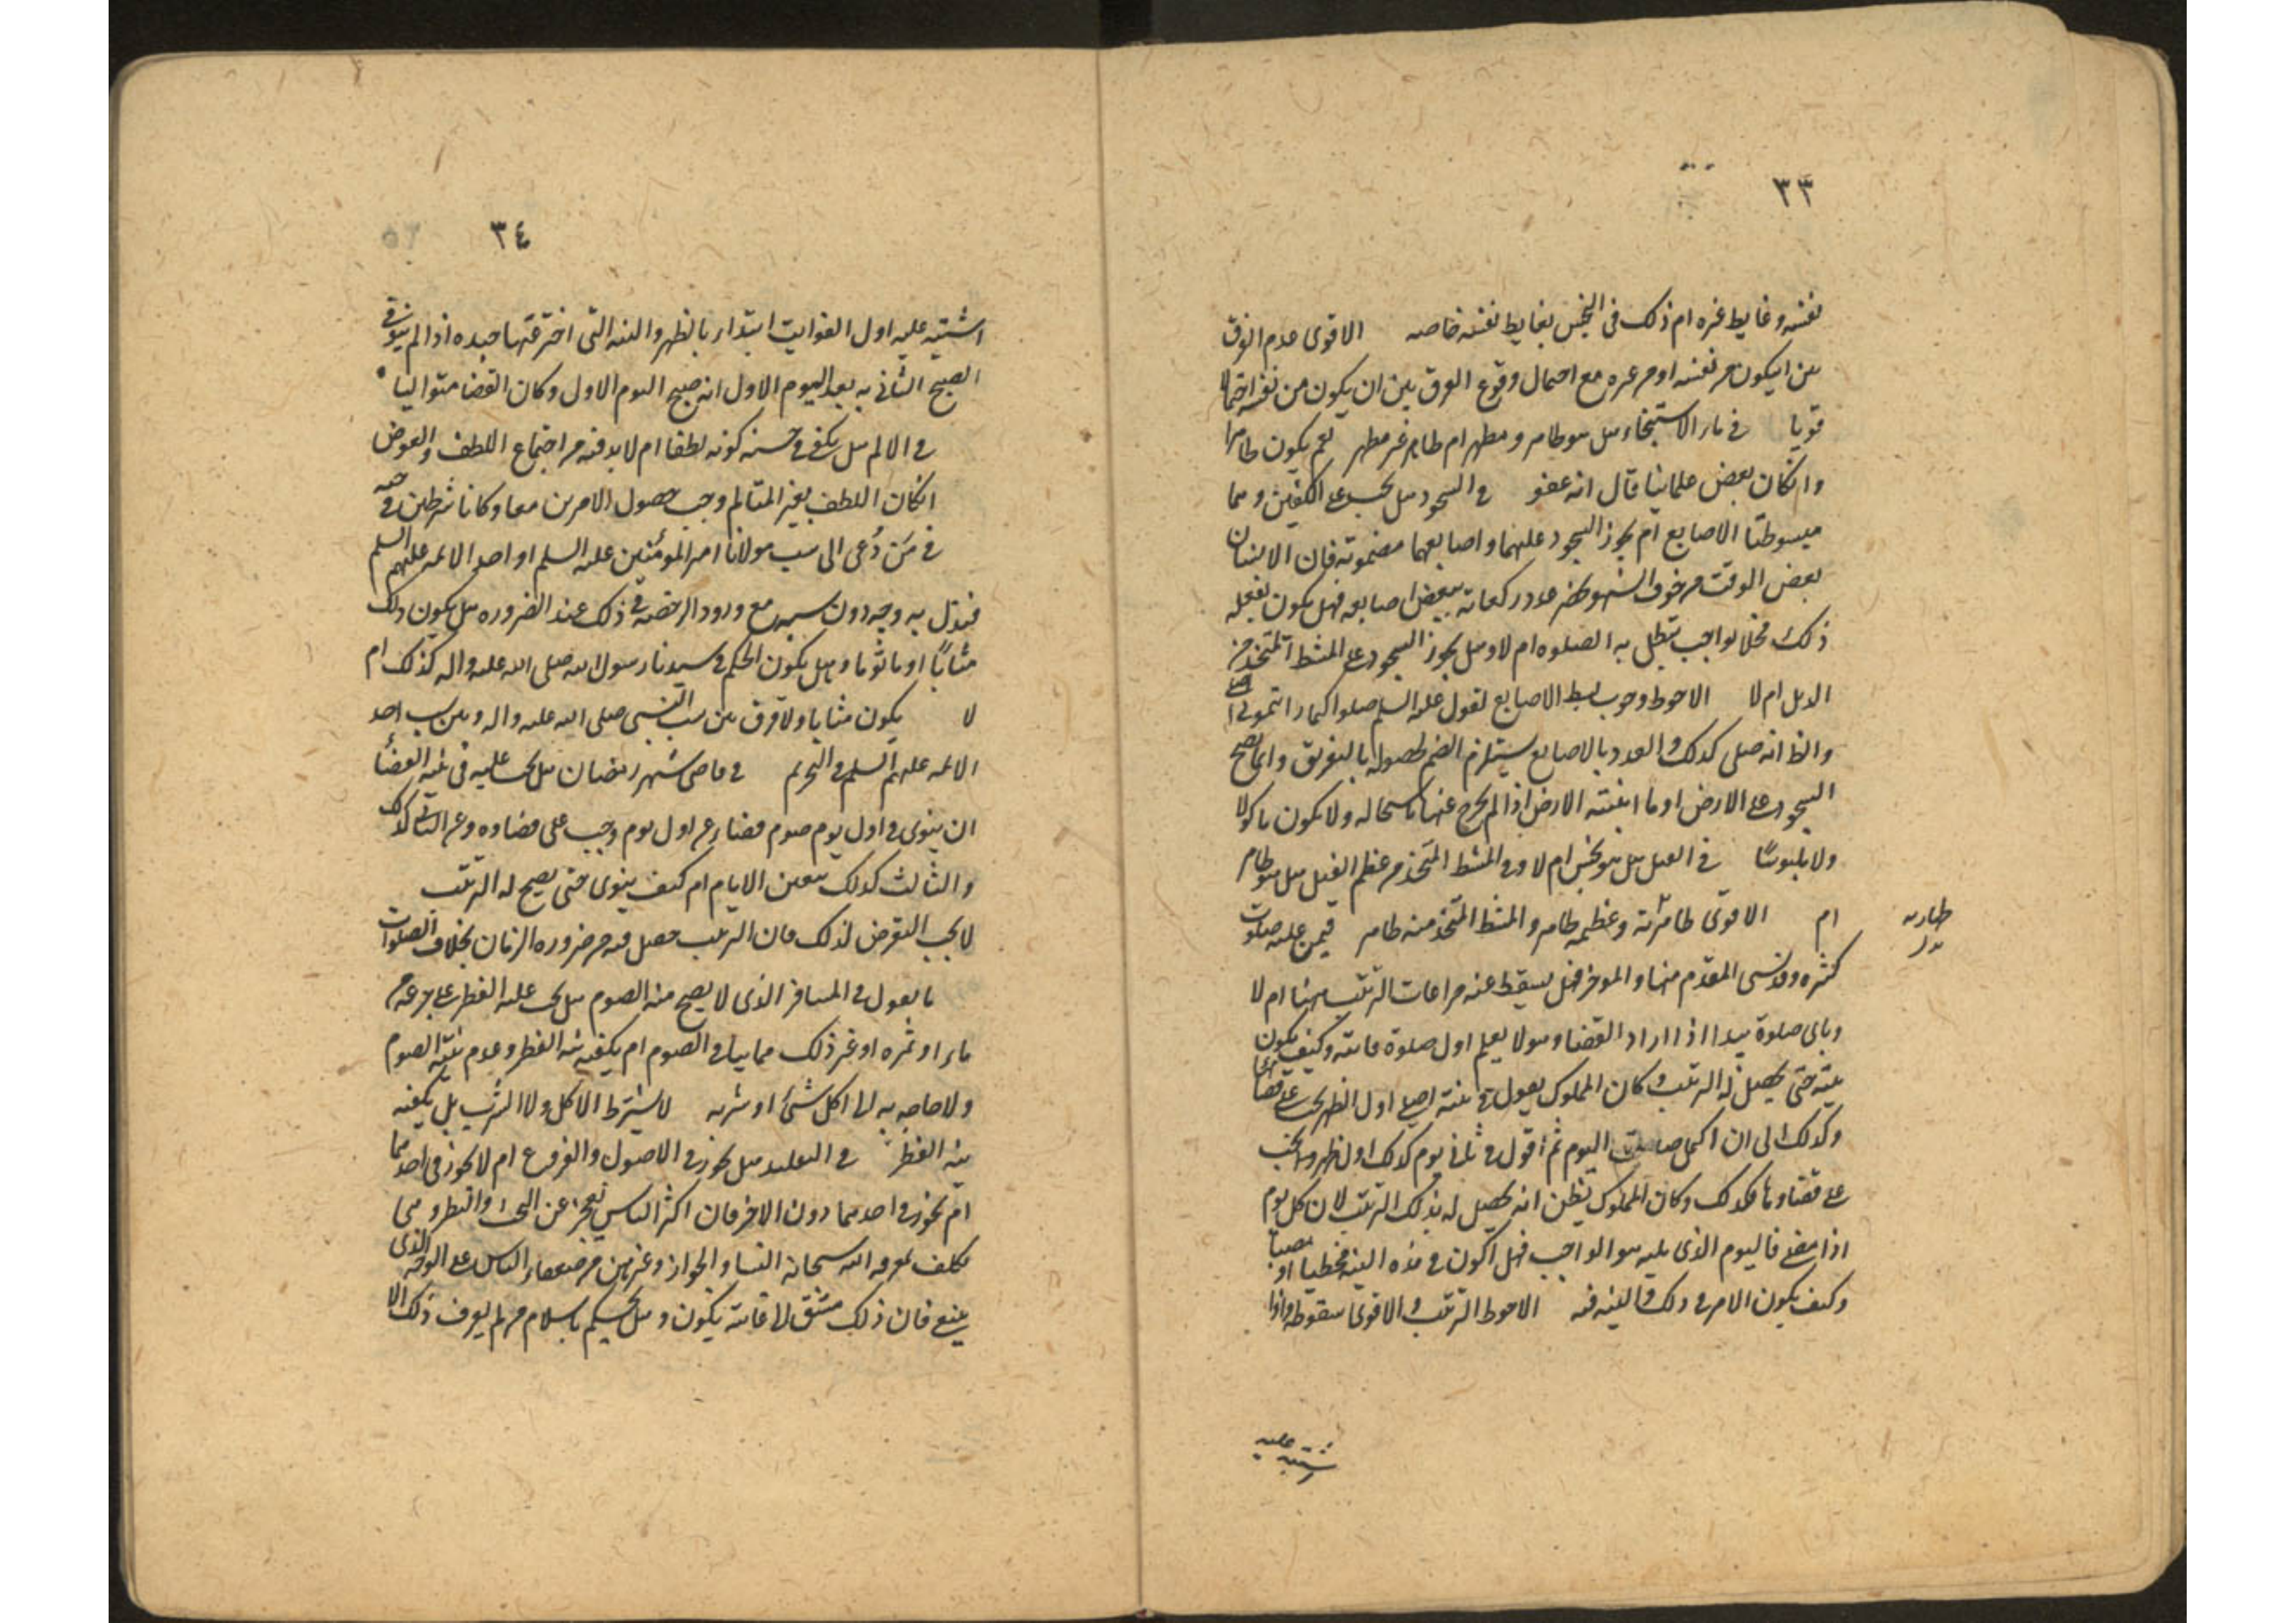 ٣٣
نفسه وغايط غيره ام ذلك في النجس بغايط نفسه خاصه الاقوى عدم الفرق
بين ان يكون من نفسه او من غيره مع احتمال وقوع الفرق بين ان يكون من نفسه احتمالا
قويا في ماء الاستنجاء هل هو طاهر ومطهر ام طاهر غير مطهر نعم يكون طاهرا
وان كان بعض علمائنا قال انه عفو في السجود هل يجب على الكفين وهما
مبسوطتا الاصابع ام يجوز السجود عليهما واصابعهما مضمومة فان الانسان
بعض الوقت من خوف السهو يحصر عدد ركعاته ببعض اصابعه فهل يكون بفعله
ذلك مخلا بواجب تبطل به الصلوه ام لا وهل يجوز السجود على المشط المتخذ من
الدبل ام لا الاحوط وجوب بسط الاصابع لقوله عليه السلم صلوا كما رايتموني اصلي
والظ انه صلى كذلك والعدد بالاصابع يستلزم الضم لحصوله بالتفريق وانما يصح
السجود على الارض او ما انبتته الارض اذا لم يخرج عنها بالاستحاله ولا يكون ماكولا
ولا ملبوسا في الفيل هل هو نجس ام لا وفي المشط المتخذ من عظم الفيل هل هو طاهر
ام الاقوى طهارته وعظمه طاهر والمشط المتخذ منه طاهر فيمن عليه صلوات
طهارته
بدل
كثيره وقد نسى المقدم منها والموخر فهل يسقط عنه مراعات الترتيب بينها ام لا
وباى صلوة يبدا اذا اراد القضا وهو لا يعلم اول صلوة فائته وكيف يكون
نيته حتى يحصل له الترتيب وكان المملوك يقول في نيته اصلى اول الظهر يجب على قضاؤها
وكذلك الى ان اكمل صلوات اليوم ثم اقول في ثاني يوم كذلك اول ظهر وجب
على قضاؤها وكذلك وكان المملوك يظن انه يحصل له بذلك الترتيب لان كل يوم
اذا مضى فاليوم الذى يليه هو الواجب فهل اكون في هذه النيه مخطيا او مصيبا
وكيف يكون الامر في ذلك والنيه فيه الاحوط الترتيب والاقوى سقوطه واذا
اشتبه عليه
٣٤
اشتبه عليه اول الفوايت ابتدا بالظهر والنيه التى اخترعتها جيده اذا لم ينو في
الصبح الثاني به بعد اليوم الاول انه صبح اليوم الاول وكان القضا متواليا
في الالم هل يكفى في حسنه كونه لطفا ام لا بد فيه من اجتماع اللطف والعوض
ان كان اللطف بغير المتالم وجب حصول الامرين معا وكانا شرطين في حسنه
في من دُعى الى سب مولانا امير المومنين عليه السلم او احد الائمه عليهم السلم
فبذل به وجه دون سبهم مع ورود الرخصه في ذلك عند الضروره هل يكون ذلك
مثابًا او ماثوما وهل يكون الحكم في سيدنا رسول الله صلى الله عليه واله كذلك ام
لا يكون مثابا ولا فرق بين سب النبي صلى الله عليه واله وبين سب احد
الائمه عليهم السلم في التحريم في قاضى شهر رمضان هل يجب عليه في نيه القضا
ان ينوى في اول يوم صوم قضاء عن اول يوم وجب على قضاوه وعن الثاني كذلك
والثالث كذلك بتعين الايام ام كيف ينوى حتى يصح له الترتيب
لا يجب التعرض لذلك فان الترتيب حصل فيه من ضروره الزمان بخلاف الصلوات
ما يقول في المسافر الذى لا يصح منه الصوم هل يجب عليه الفطر على جرعه من
ماء او تمره او غير ذلك مما ينافي الصوم ام يكفيه نيه الفطر وعدم نيته الصوم
ولا حاجه به الى اكل شئ او شربه لا يشترط الاكل ولا الشرب بل يكفيه
نية الفطر في التقليد هل يجوز في الاصول والفروع ام لا يجوز في احدهما
ام يجوز في احدهما دون الاخر فان اكثر الناس يعجز عن البحث والنظر وهى
تكلف معرفه الله سبحانه النسا والجوار وغيرهن من ضعفاء الناس على الوجه الذى
ينبغى فان ذلك مشق الى غايته يكون وهل يحكم باسلام من لم يعرف ذلك الا